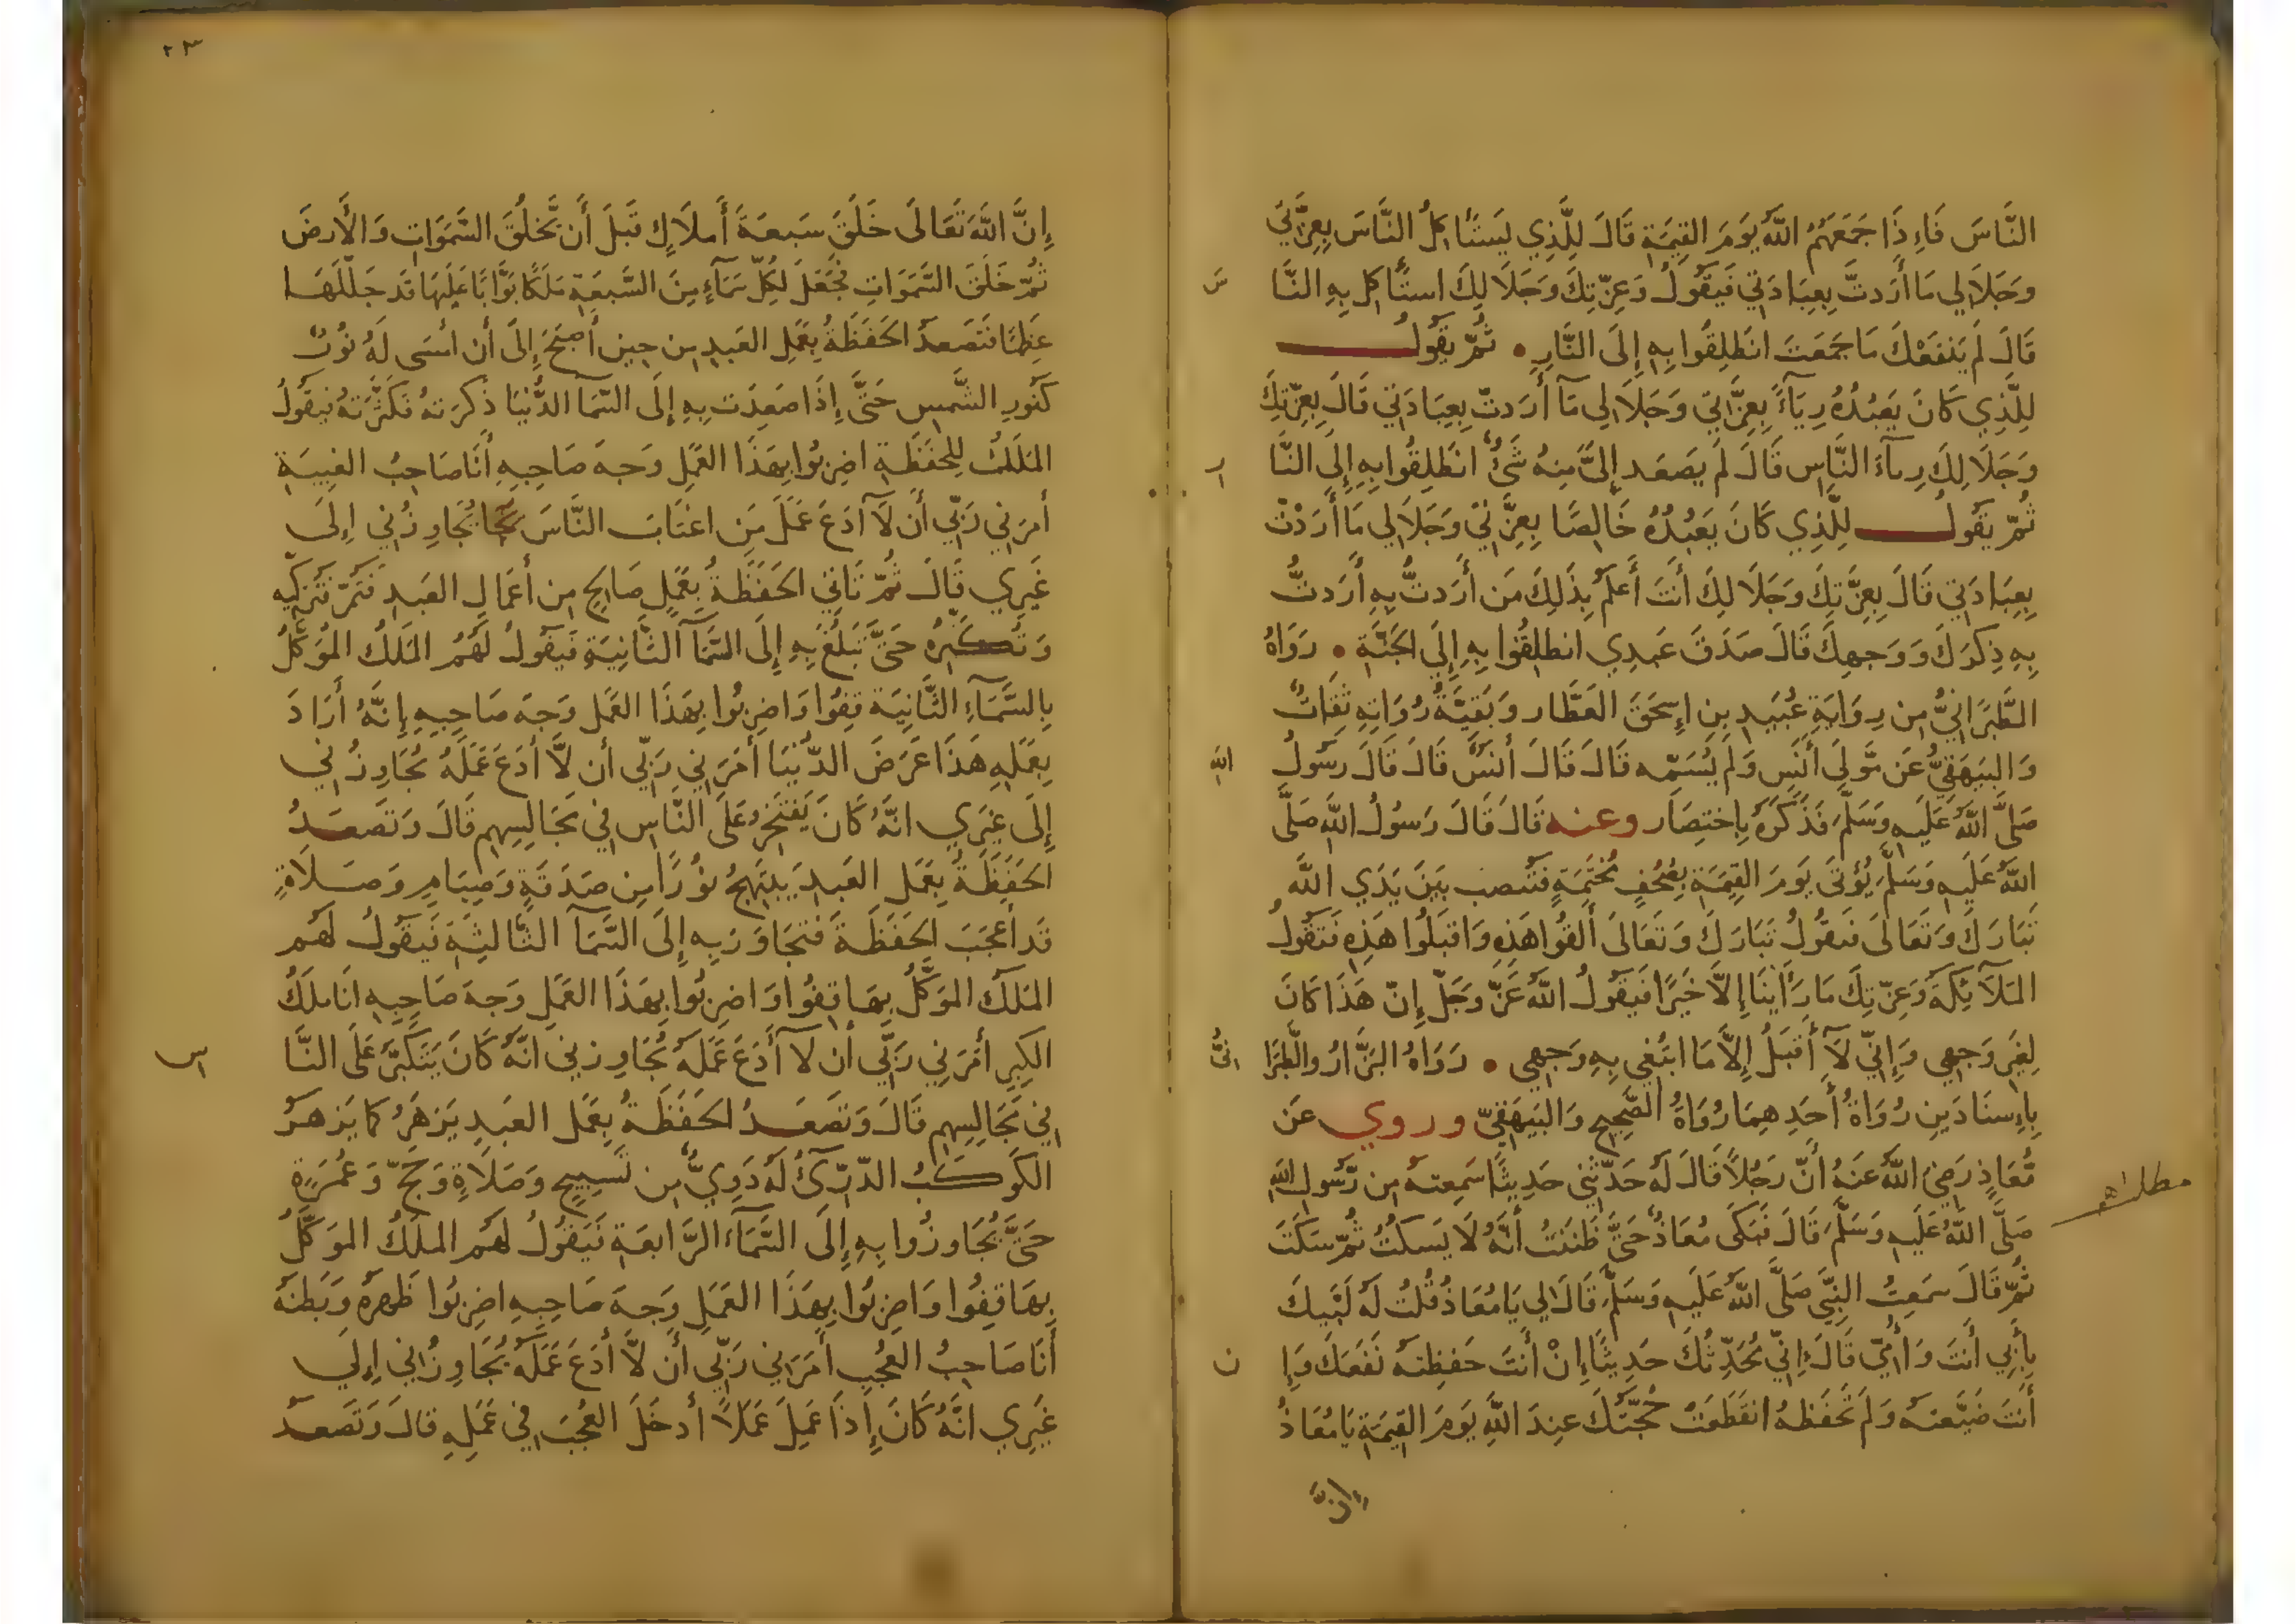 النَّاسَ فَإِذَا جَمَعَهُمُ اللَّهُ يَوْمَ القِيمَةِ قَالَ لِلَّذِي يَستَأكِلُ النَّاسَ بِعِزَّتِي
وَجَلَالِي مَا أَرَدتَّ بِعِبَادَتِي فَيَقُولُ وَعِزَّتِكَ وَجَلَالِكَ استَأكِل بِهِ النَّا س
قَالَ لَم يَنفَعْكَ مَا جَمَعتَ انطَلِقُوا بِهِ إِلَى النَّارِ • ثُمَّ يَقُولُ
لِلَّذِي كَانَ يَعبُدُهُ رِيَآءً بِعِزَّتِي وَجَلَالِي مَآ أَرَدتَّ بِعِبَادَتِي قَالَ بِعِزَّتِكَ
وَجَلَالِكَ رِيآءَ النَّاسِ قَالَ لَم يَصعَد إِلَيَّ مِنهُ شَيءٌ انطَلِقُوا بِهِ إِلَى النَّا ر
ثُمَّ يَقُولُ لِلَّذِي كَانَ يَعبُدُهُ خَالِصًا بِعِزَّتِي وَجَلَالِي مَا أَرَدْتَ
بِعِبَادَتِي قَالَ بِعِزَّتِكَ وَجَلَالِكَ أَنتَ أَعلَمُ بِذَلِكَ مَن أَرَدتُّ بِهِ أَرَدتُّ
بِهِ ذِكرَكَ وَوَجهِكَ قَالَ صَدَقَ عَبدِي انطلِقُوا بِهِ إِلَى الجَنَّةِ • رَوَاهُ
الطَّبَرَانِيُّ مِن رِوَايَةِ عُبَيدِ بنِ إِسحَقَ العَطَّار وَبَقِيَّةُ رُوَاتِهِ ثِقَاتٌ
وَالبَيهَقِيُّ عَن مَّولَى أَنَسٍ وَلَم يُسَمِّه قَالَ قَالَ أَنَسٌ قَالَ قَالَ رَسُولُ اللهِ
صَلَّى اللَّهُ عَلَيهِ وَسَلَّمَ فَذَكَرَهُ بِإختِصَار وعنه قَالَ قَالَ رَسُولُ اللَّهِ صَلَّى
اللَّهُ عَلَيهِ وَسَلَّمَ يُؤتَى يَومَ القِيمَةِ بِصُحُفٍ مُختَّمَةٍ فَتُنصَب بَينَ يَدَي اللَّهِ
تَبَارَكَ وَتَعَالَى فَيَقُولُ تَبَارَكَ وَتَعَالَى أَلقُوا هَذِهِ وَاقبَلُوا هَذِهِ فَتَقُولُ
المَلَآئِكَةُ وَعِزَّتِكَ مَا رَأَيْنَا إِلَّا خَيرًا فَيَقُولُ اللَّهُ عَزَّ وَجَلَّ إِنَّ هَذَا كَانَ
لِغَيرِ وَجهِي وَإِنِّي لَآ أَقبَلُ إِلَّا مَا ابتُغِي بِهِ وَجهِي • رَوَاهُ البَزَّارُ والطَّبَرَا نِيُّ
بِإِسنَادَينِ رُوَاةُ أَحَدِهِمَا رُوَاةُ الصَّحِيحِ وَالبَيهَقِيّ وروي عَن
مُّعَاذٍ رَضِيَ اللَّهُ عَنهُ أَنَّ رَجُلًا قَالَ لَهُ حَدِّثنِي حَدِيثًا سَمِعتَهُ مِن رَّسُولِ اللهِ
صَلَّى اللَّهُ عَلَيهِ وَسَلَّمَ قَالَ فَبَكَى مُعَاذٌ حَتَّى ظَنَنتُ أَنَّهُ لَا يَسكُتُ ثُمَّ سَكَتَ
ثُمَّ قَالَ سَمِعتُ النَّبِيَّ صَلَّى اللَّهُ عَلَيهِ وَسَلَّمَ قَالَ لِي يَا مُعَاذُ قُلتُ لَهُ لَبَّيكَ
بِأَبِي أَنتَ وَأُمِّي قَالَ إِنِّي مُحَدِّثُكَ حَدِيثًا إِنْ أَنتَ حَفِظتَهُ نَفَعَكَ وَإِ ن
أَنتَ ضَيَّعتَهُ وَلَم تَحفَظهُ انقَطَعَتْ حُجَّتُكَ عِندَ اللَّهِ يَومَ القِيمَةِ يَا مُعَاذُ
إِنَّ
٢٣
إِنَّ اللَّهَ تَعَالَى خَلَقَ سَبعَةَ أَملَاكٍ قَبلَ أَن يَّخلُقَ السَّمَوَاتِ وَالأَرضَ
ثُمَّ خَلَقَ السَّمَوَاتِ فَجَعَلَ لِكُلِّ سَمَآءٍ مِنَ السَّبعَةِ مَلَكًا بَوَّابًا عَلَيهَا قَد جَلَّلَهَا
عِظَمًا فَتَصعَدُ الحَفَظَةُ بِعَمَلِ العَبدِ مِن حِينِ أَصبَحَ إِلَى أَن أَمسَى لَهُ نُورٌ
كَنُورِ الشَّمسِ حَتَّى إِذَا صَعِدَت بِهِ إِلَى السَّمَآ الدُّنيَا ذَكَرَتهُ فَكَثَّرَتهُ فَيَقُولُ
المَلَكُ لِلحَفَظَةِ اضرِبُوا بِهَذَا العَمَلِ وَجهَ صَاحِبِهِ أَنَا صَاحِبُ الغِيبَةِ
أَمَرَنِي رَبِّي أَن لَّآ أَدَعَ عَمَلَ مَنِ اغتَابَ النَّاسَ يُجَاوِزُنِي إِلَى
غَيرِي قَالَ ثُمَّ تَأتِي الحَفَظَةُ بِعَمَلٍ صَالِحٍ مِن أَعمَالِ العَبدِ فَتَمُرُّ فَتُزَكِّيهِ
وَتُكَثِّرُهُ حَتَّى تَبلُغَ بِهِ إِلَى السَّمَآ الثَّانِيَةِ فَيَقُولُ لَهُمُ المَلَكُ المُوَكَّلُ
بِالسَّمَآءِ الثَّانِيَةِ قِفُوا وَاضرِبُوا بِهَذَا العَمَلِ وَجهَ صَاحِبِهِ إِنَّهُ أَرَادَ
بِعَمَلِهِ هَذَا عَرَضَ الدُّنيَا أَمَرَنِي رَبِّي أَن لَّا أَدَعَ عَمَلَهُ يُجَاوِزُنِي
إِلَى غَيرِي انَّهُ كَانَ يَفتَخِرُ عَلَى النَّاسِ فِي مَجَالِسِهِم قَالَ وَتَصعَدُ
الحَفَظَةُ بِعَمَلِ العَبدِ يَبتَهِجُ نُورًا مِن صَدَقَةٍ وَصِيَامٍ وَصَلَاةٍ
قَد أَعجَبَ الحَفَظَةَ فَتَجَاوَزَ بِهِ إِلَى السَّمَآ الثَّالِثَةِ فَيَقُولُ لَهُم
المَلَكُ المُوَكَّلُ بِهَا قِفُوا وَاضرِبُوا بِهَذَا العَمَلِ وَجهَ صَاحِبِهِ انَا مَلَكُ
الكِبرِ أَمَرَنِي رَبِّي أَن لَآ أَدَعَ عَمَلَهُ يُجَاوِزنِي انَّهُ كَانَ يَتَكَبَّرُ عَلَى النَّا س
فِي مَجَالِسِهِم قَالَ وَتَصعَدُ الحَفَظَةُ بِعَمَلِ العَبدِ يَزهَرُ كَمَا يَزهَرُ
الكَوكَبُ الدُّرِّيُّ لَهُ دَوِيٌّ مِن تَسبِيحٍ وَصَلَاةٍ وَحَجٍّ وَعُمرَةٍ
حَتَّى يُجَاوِزُوا بِهِ إِلَى السَّمَآءِ الرَّابعَةِ فَيَقُولُ لَهُم المَلَكُ المُوَكَّلُ
بِهَا قِفُوا وَاضرِبُوا بِهَذَا العَمَلِ وَجهَ صَاحِبِهِ اضرِبُوا ظَهرَهُ وَبَطنَهُ
أَنَا صَاحِبُ العُجبِ أَمَرَنِي رَبِّي أَن لَّا أَدَعَ عَمَلَهُ يُجَاوِزُنِي إِلَى
غَيرِي انَّهُ كَانَ إِذَا عَمِلَ عَمَلًا أَدخَلَ العُجبَ فِي عَمَلِهِ قَالَ وَتَصعَدُ